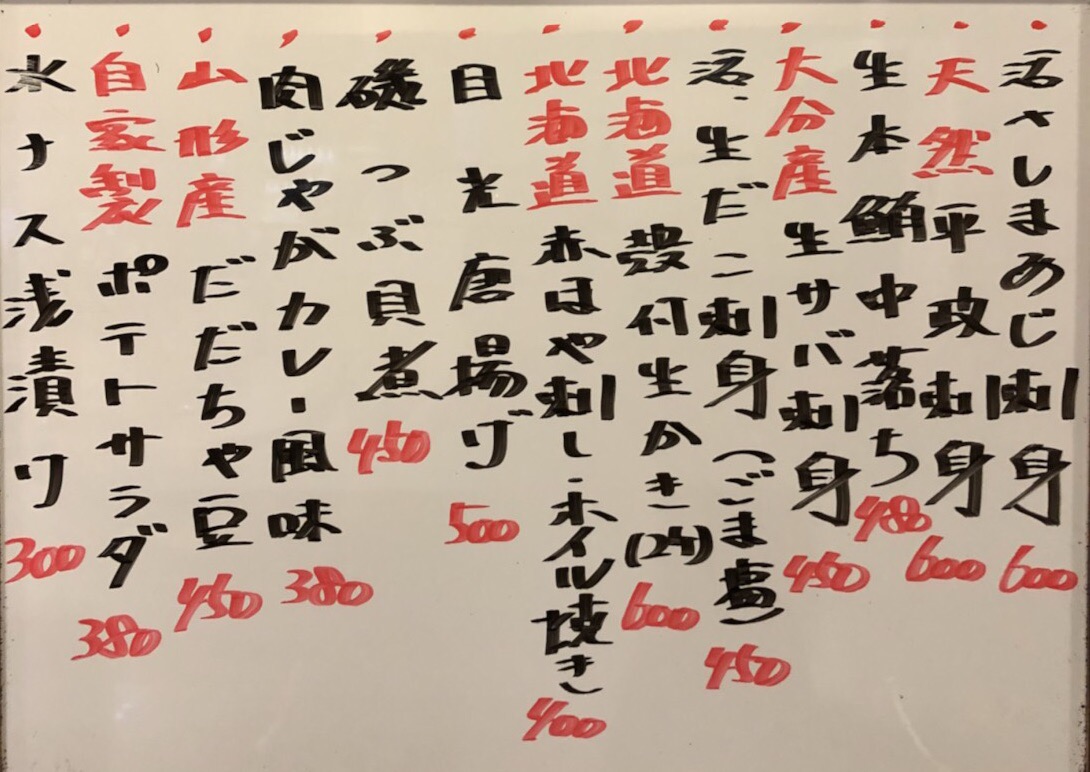 ・活〆しまあじ刺身 600
・天然平政刺身 600
・生本鮪中落ち 480
・大分産生サバ刺身 450
・活.生だこ刺身(ごま塩) 450
・北海道殻付生かき(2ケ) 600
・北海道赤ほや刺し・ホイル焼き 400
・目光唐揚げ 500
・磯つぶ貝煮 450
・肉じゃがカレー風味 380
・山形産だだちゃ豆 450
・自家製ポテトサラダ 380
・水ナス浅漬り 300